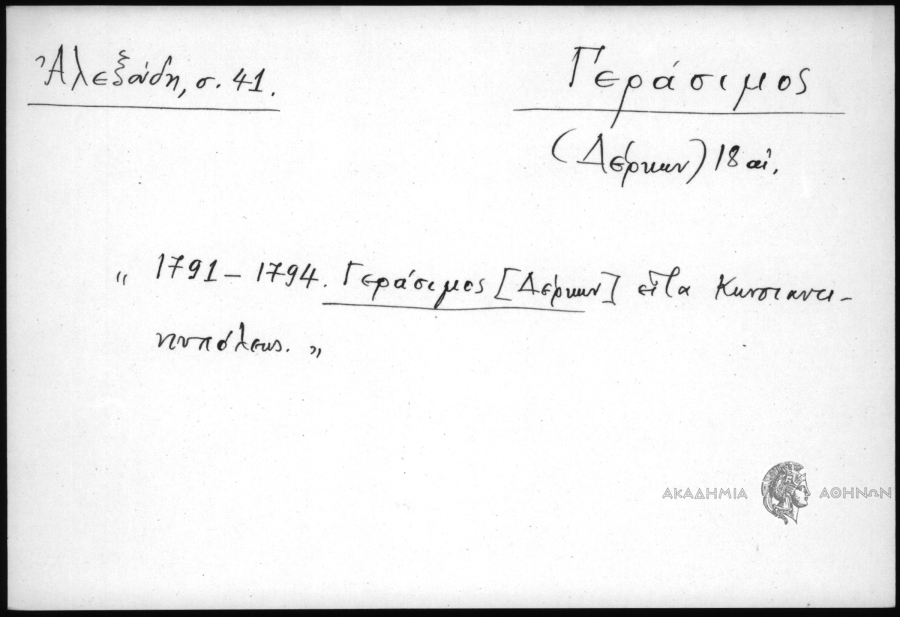 Ἀλεξάνδη, σ. 41.
Γεράσιμος
(Δέρκων) 18 αἰ.
„ 1791 – 1794. Γεράσιμος [Δέρκων] εἶτα Κωνσταντι-
νουπόλεως. „
ΑΚΑΔΗΜΙΑ ΑΘΗΝΩΝ